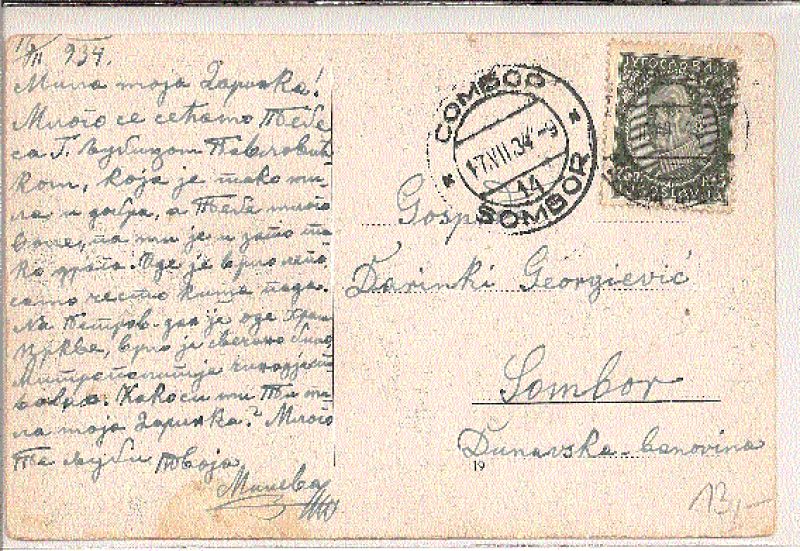 16/VII 934.
Мила моја Даринка!
Много се сећамо Тебе
са Г. Љубицом Павловић
ком, која је тако ми-
ла и добра, а Тебе много
воле, па ми је и зато та-
ко драга. Оде је врло лепо
само често киша пада.
На Петров-дан је оде Храм
Цркве, врло је свечано било,
Митрополит је чинодејст
вовао. Како си ми Ти ми-
ла моја Даринка? Много
Те љуби Твоја
Милева
СОМБОР
17.VII.34-9
14
SOMBOR
ЈУГОСЛАВИЈА
Gosp
Darinki Georgiević
Sombor
Dunavska banovina
19
13,-